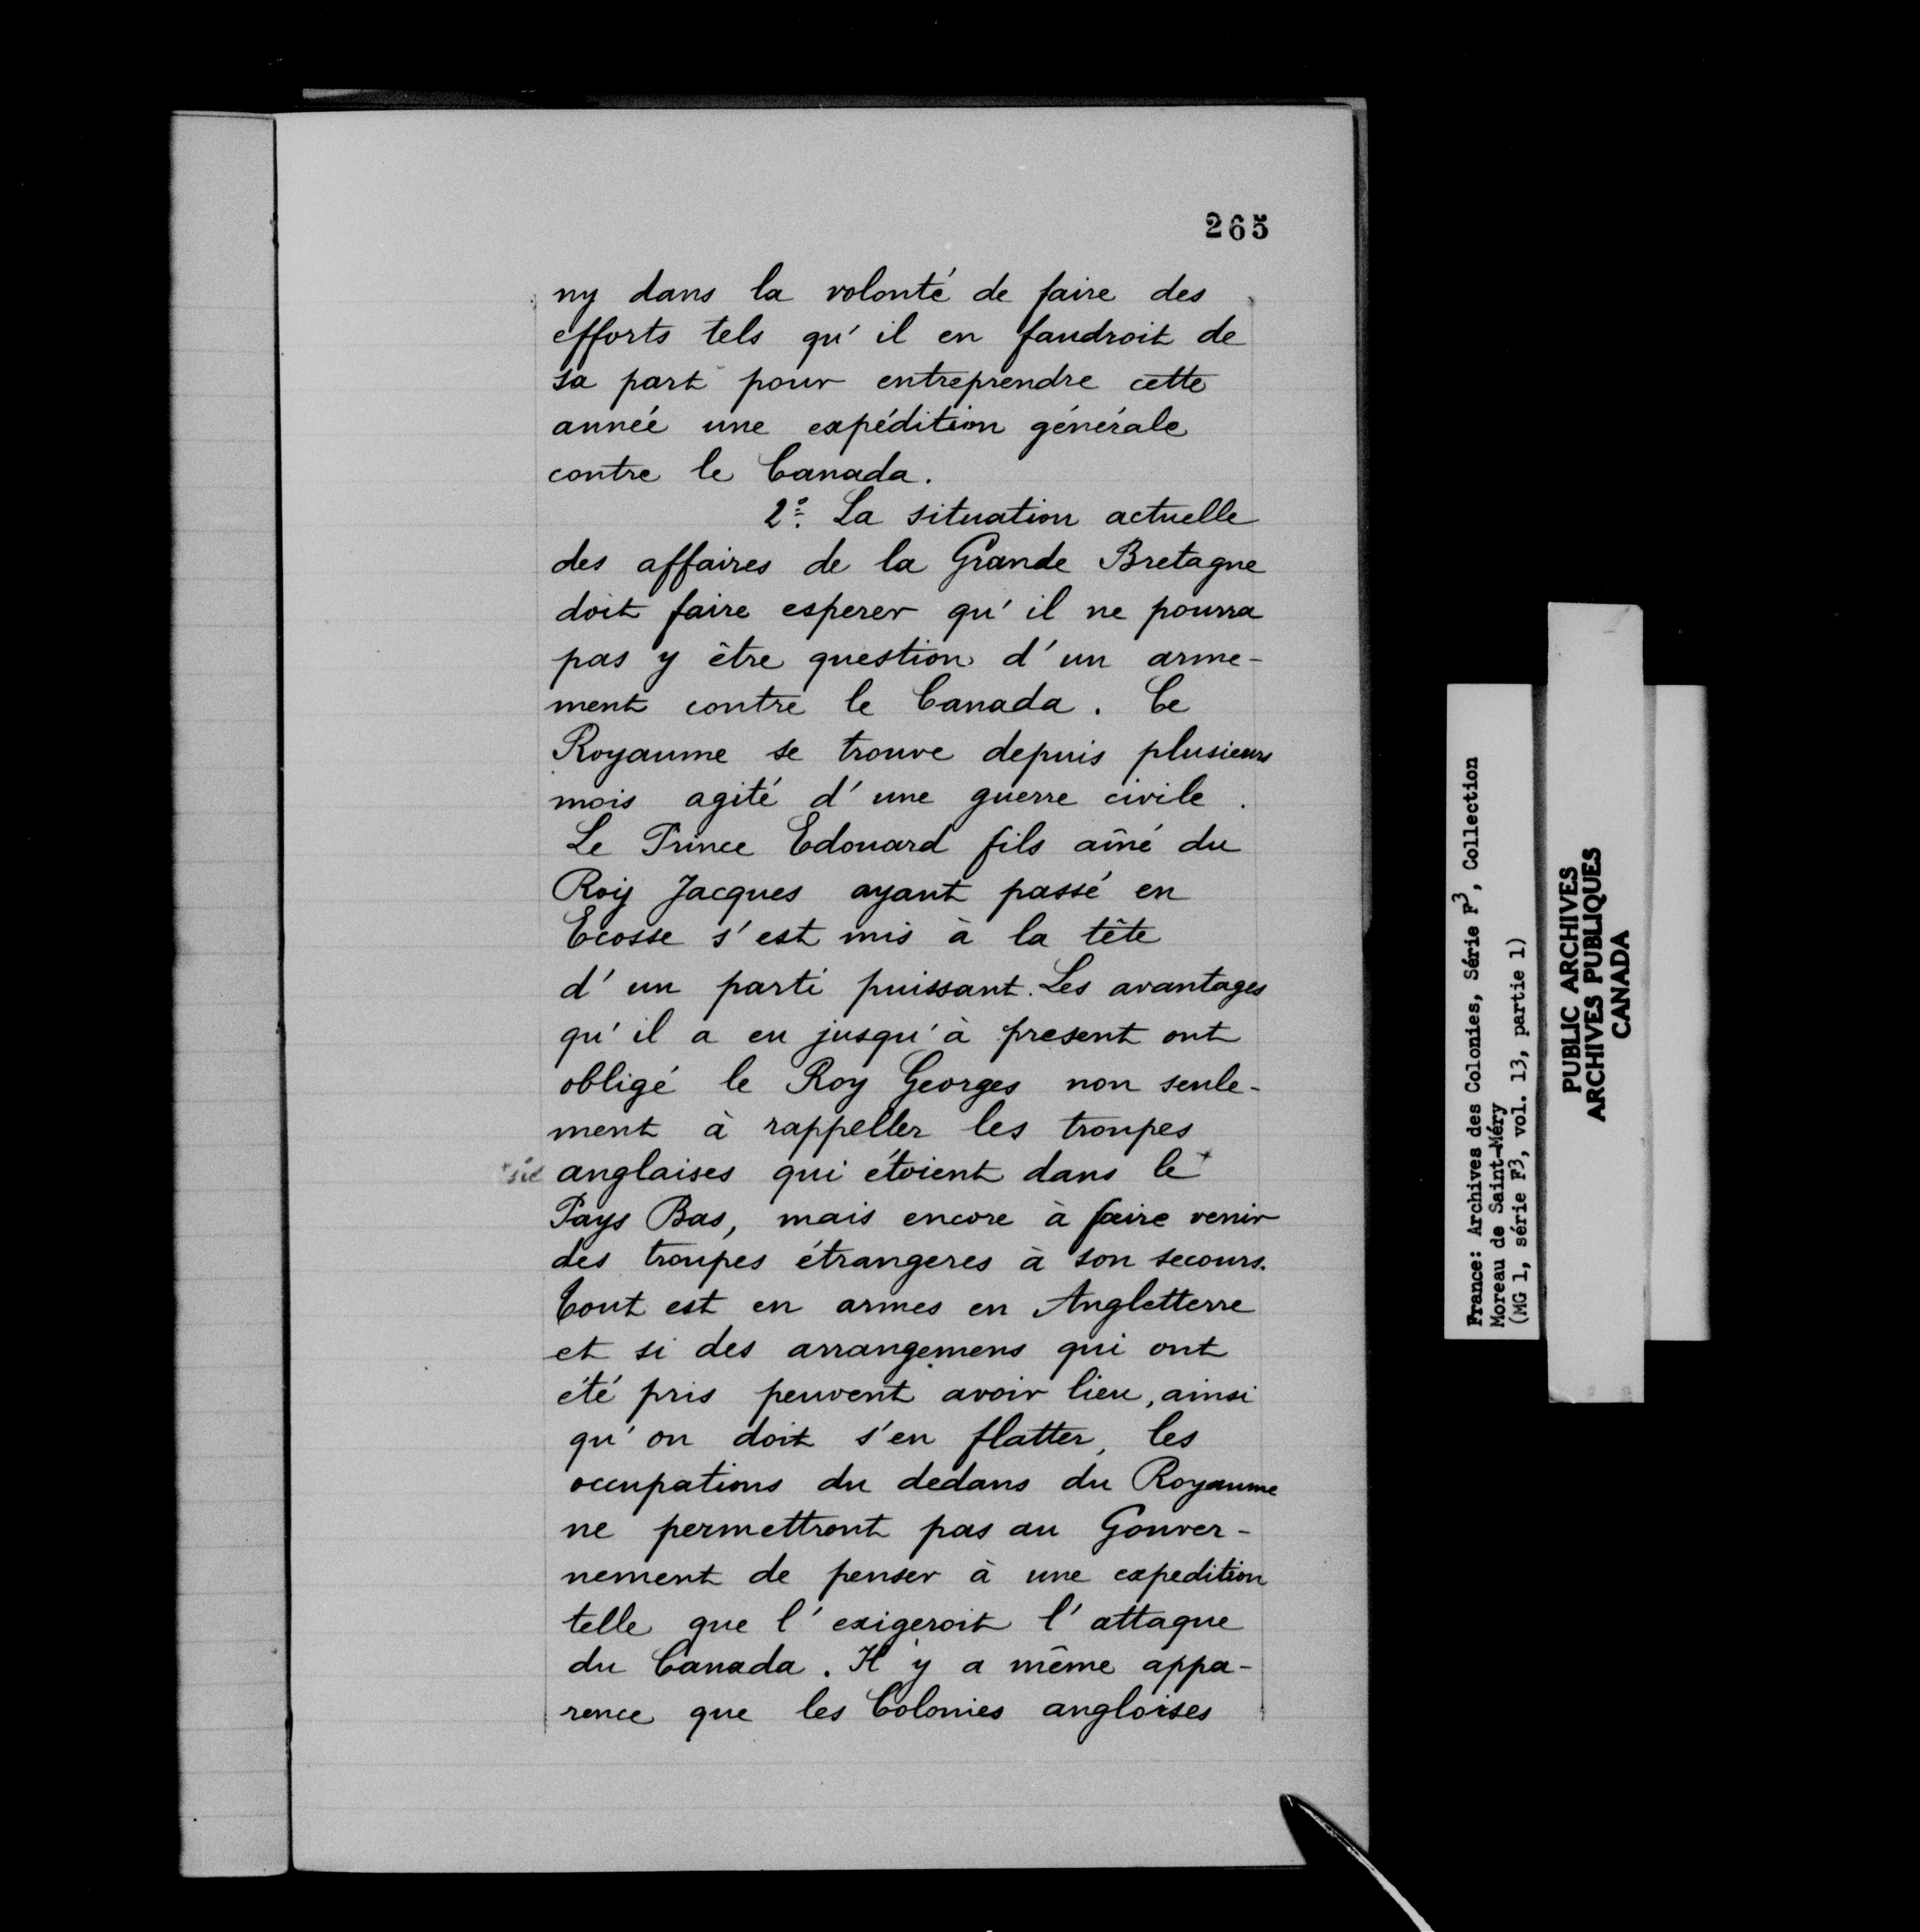 265
ny dans la volonté de faire des
efforts tels qu'il en faudroit de
sa part pour entreprendre cette
année une expédition générale
contre le Canada.
2º. La situation actuelle
des affaires de la Grande Bretagne
doit faire esperer qu'il ne pourra
pas y être question d'un arme-
ment contre le Canada. Ce
Royaume se trouve depuis plusieurs
mois agité d'une guerre civile.
Le Prince Edouard fils aîné du
Roy Jacques ayant passé en
Ecosse s'est mis à la tête
d'un parti puissant. Les avantages
qu'il a eu jusqu'à present ont
obligé le Roy Georges non seule-
ment à rappeller les troupes
+sic anglaises qui étoient dans le+
Pays Bas, mais encore à faire venir
des troupes étrangeres à son secours.
Tout est en armes en Angletterre
et si des arrangemens qui ont
été pris peuvent avoir lieu, ainsi
qu'on doit s'en flatter, les
occupations du dedans du Royaume
ne permettront pas au Gouver-
nement de penser à une expedition
telle que l'exigeroit l'attaque
du Canada. Il y a même appa-
rence que les Colonies angloises
France: Archives des Colonies, Série F3, Collection
Moreau de Saint-Méry
(MG 1, série F3, vol. 13, partie 1)
PUBLIC ARCHIVES
ARCHIVES PUBLIQUES
CANADA